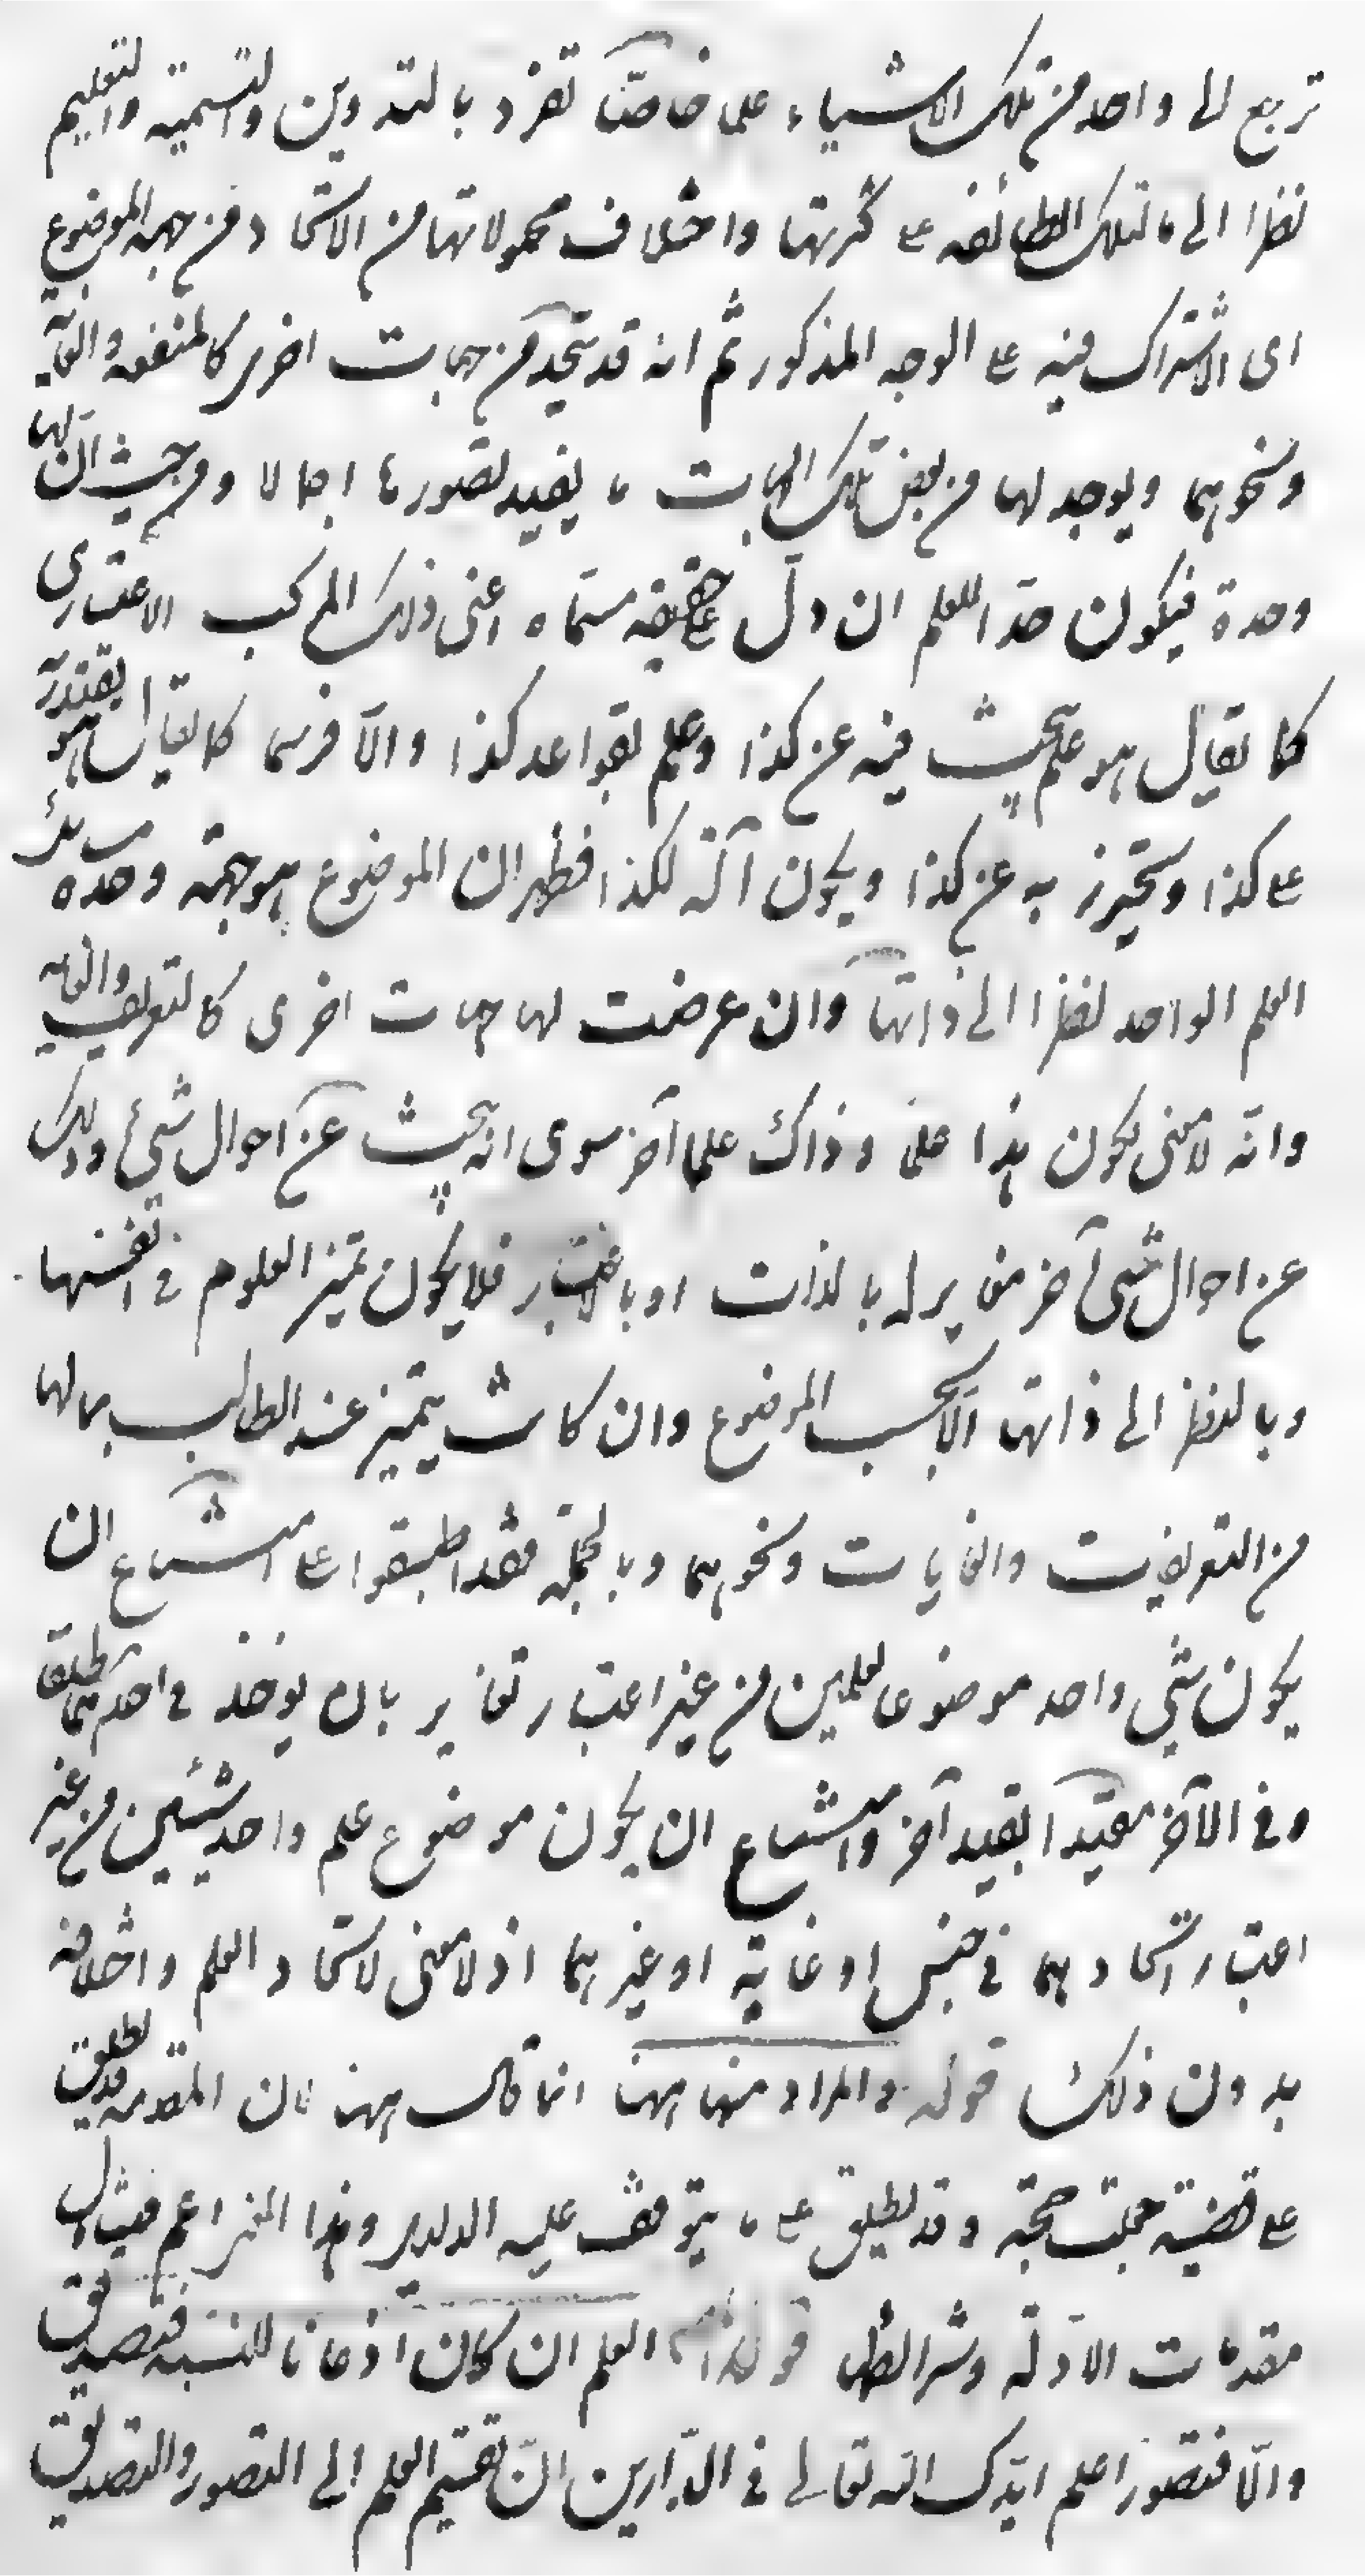 ترجع الى واحد من تلك الاشياء علما خاصّا تفرد بالتدوين والتسمية والتعليم
نظرا الى ما لتلك الطائفه على كثرتها واختلاف محمولاتها من الاتحاد من جهه الموضوع
اى الاشتراك فيه على الوجه المذكور ثم انه قد يتحد من جهات اخرى كالمنفعه والغاية
ونحوهما ويوجد لها من بعض تلك الجهات ما يفيد تصورها اجمالا ومن حيث ان لها
وحدة فيكون حدا للعلم ان دلّ على حقيقه مسمّاه اعنى ذلك المركب الاعتبارى
كما يقال هو علم يبحث فيه عن كذا وعلم بقواعد كذا والّا فرسما كما يقال هو يقتدر به
على كذا ويحترز به عن كذا ويكون آلة لكذا فظهر ان الموضوع هو جهة وحده مسائل
العلم الواحد نظرا الى ذاتها وان عرضت لها جهات اخرى كالتعريف والغايه
وانه لا معنى لكون هذا علما وذاك علما آخر سوى انه يبحث عن احوال شيء وذلك
عن احوال شيء آخر مغاير له بالذات او بالاعتبار فلا يكون تميز العلوم فى انفسها
وبالنظر الى ذاتها الّا بحسب الموضوع وان كانت يتميز عند الطالب بما لها
من التعريفات والغايات ونحوهما وبالجملة فقد اطبقوا على امتناع ان
يكون شيء واحد موضوعا لعلمين من غير اعتبار تغاير بان يوخذ فى احدهما مطلقا
وفى الآخر مقيدا بقيد آخر وامتناع ان يكون موضوع علم واحد شيئين من غير
اعتبار اتحادهما فى جنس او غاية او غيرهما اذ لا معنى لاتحاد العلم واختلافه
بدون ذلك قوله والمراد منها ههنا انما قال ههنا لان المقدمه قد تطلق
على قضية جعلت جزء حجّة وقد تطلق على ما يتوقف عليه الدليل وهذا المعنى اعم فيتناول
مقدمات الادلّة وشرائطها قوله العلم ان كان اذعانا للنسبة فتصديق
والّا فتصور اعلم ايّدك الله تعالى فى الدّارين انّ تقسيم العلم الى التصور والتصديق